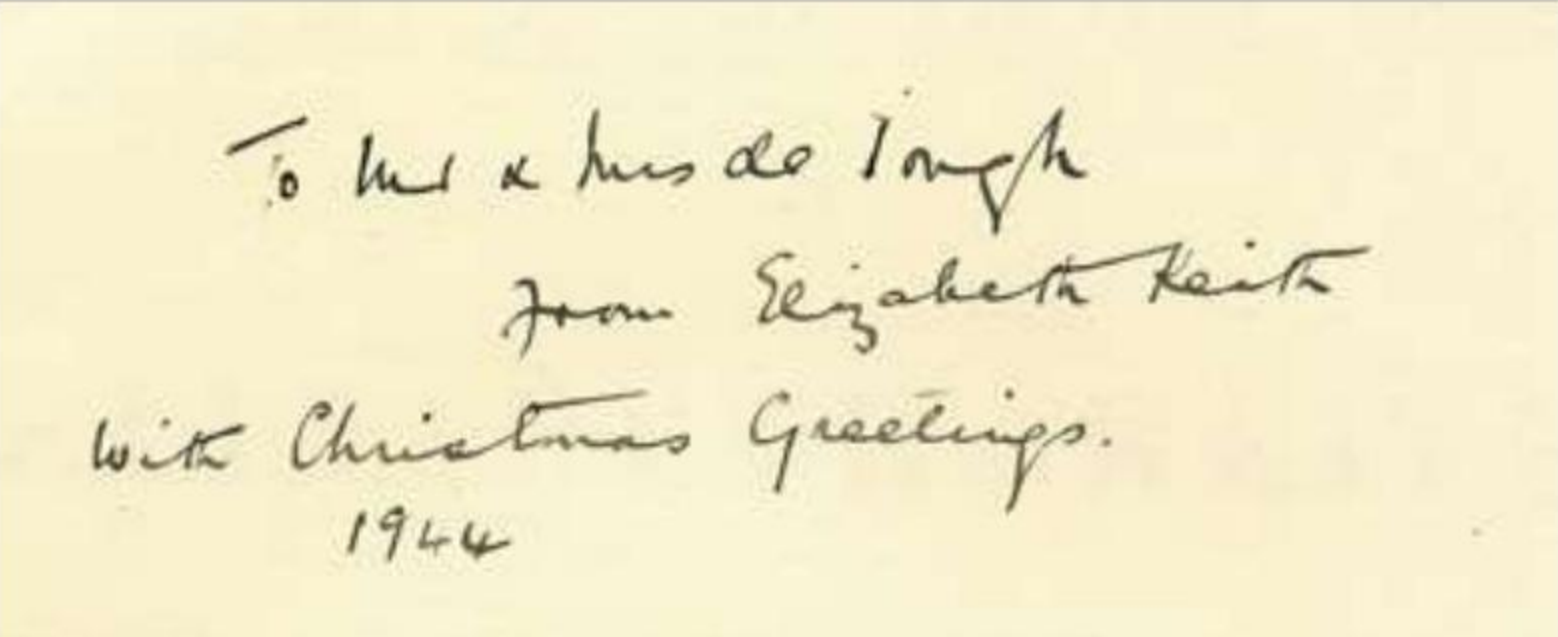 To Mr & Mrs de Jongh
From Elizabeth Keith
With Christmas Greetings.
1944